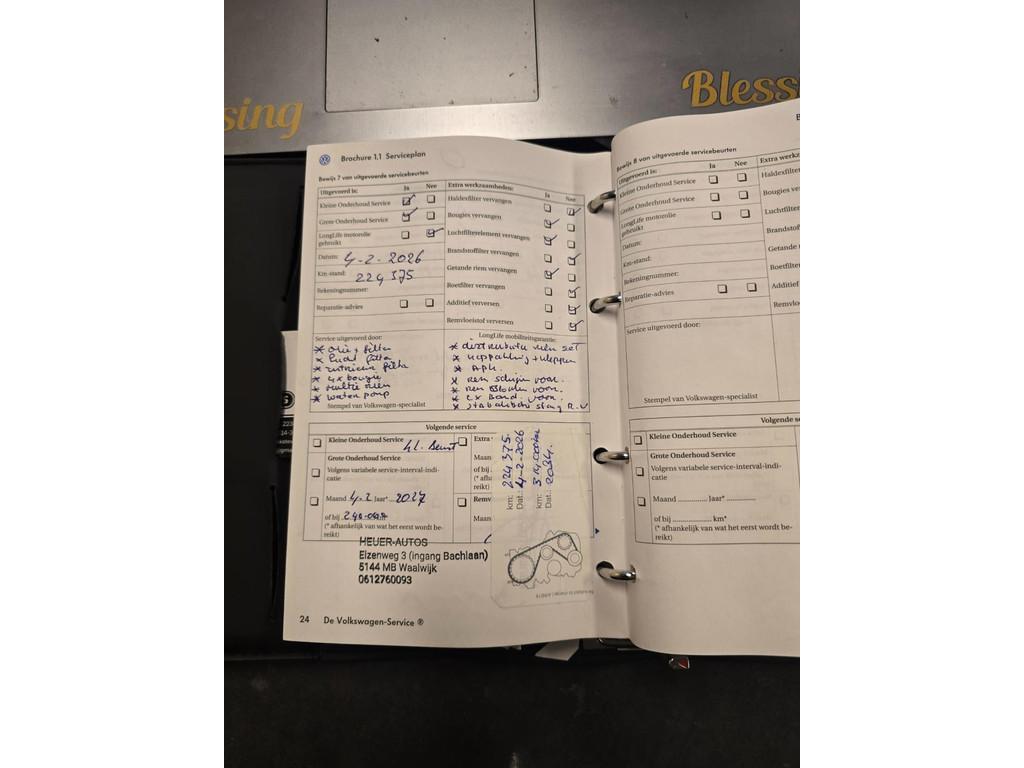 sing
Bless
Brochure 1.1 Serviceplan
Bewijs 7 van uitgevoerde servicebeurten
Uitgevoerd is:
Ja
Nee
Kleine Onderhoud Service
Grote Onderhoud Service
LongLife motorolie
gebruikt
Datum: 4-2-2026
Km-stand: 224375
Rekeningnummer:
Reparatie-advies
Extra werkzaamheden:
Ja
Nee
Haldexfilter vervangen
Bougies vervangen
Luchtfilterelement vervangen
Brandstoffilter vervangen
Getande riem vervangen
Roetfilter vervangen
Additief verversen
Remvloeistof verversen
Service uitgevoerd door:
* olie + filter
* lucht filter
* interieur filter
* 4x bougie
* multie riem
* water pomp
Stempel van Volkswagen-specialist
LongLife mobiliteitsgarantie:
* distributie riem set
* APK.
* rem schijven voor.
* rem blokken voor.
* 2x Band. voor.
Volgende service
Kleine Onderhoud Service
Grote Onderhoud Service
Volgens variabele service-interval-indi-
catie
Maand 4-2 Jaar* 2027
of bij
(* afhankelijk van wat het eerst wordt be-
reikt)
Extra
Maan
of bij
(* afh
reikt)
Remv
Maan
km: 224375.
Dat.: 4-2-2026
km:
Dat.: 2034.
HEUER-AUTOS
Elzenweg 3 (ingang Bachlaan)
5144 MB Waalwijk
0612760093
24 De Volkswagen-Service ®
B
Bewijs 8 van uitgevoerde servicebeurten
Uitgevoerd is:
Ja
Nee
Kleine Onderhoud Service
Grote Onderhoud Service
LongLife motorolie
gebruikt
Datum:
Km-stand:
Rekeningnummer:
Reparatie-advies
Extra werkz
Haldexfilter
Bougies ver
Luchtfilter
Brandstof
Getande
Roetfilter
Additief
Remvloe
Service uitgevoerd door:
Stempel van Volkswagen-specialist
Volgende se
Kleine Onderhoud Service
Grote Onderhoud Service
Volgens variabele service-interval-indi-
catie
Maand ............ Jaar* ............
of bij ............ km*
(* afhankelijk van wat het eerst wordt be-
reikt)